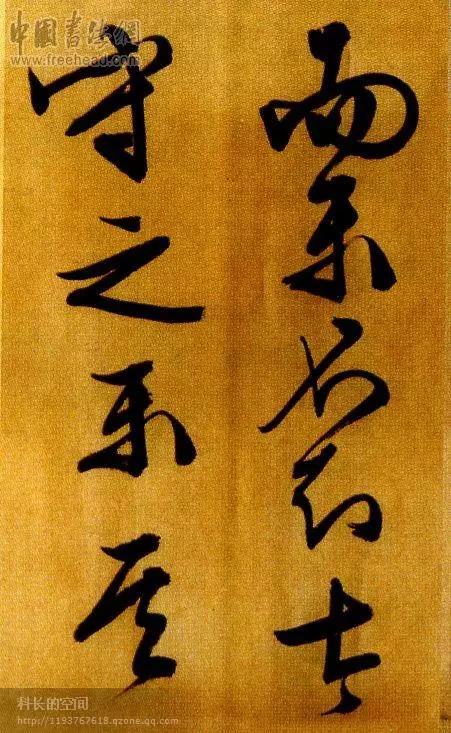 中國書法網
www.freehead.com
而樂不知太
守之樂其
科长的空间
http://1193767618.qzone.qq.com